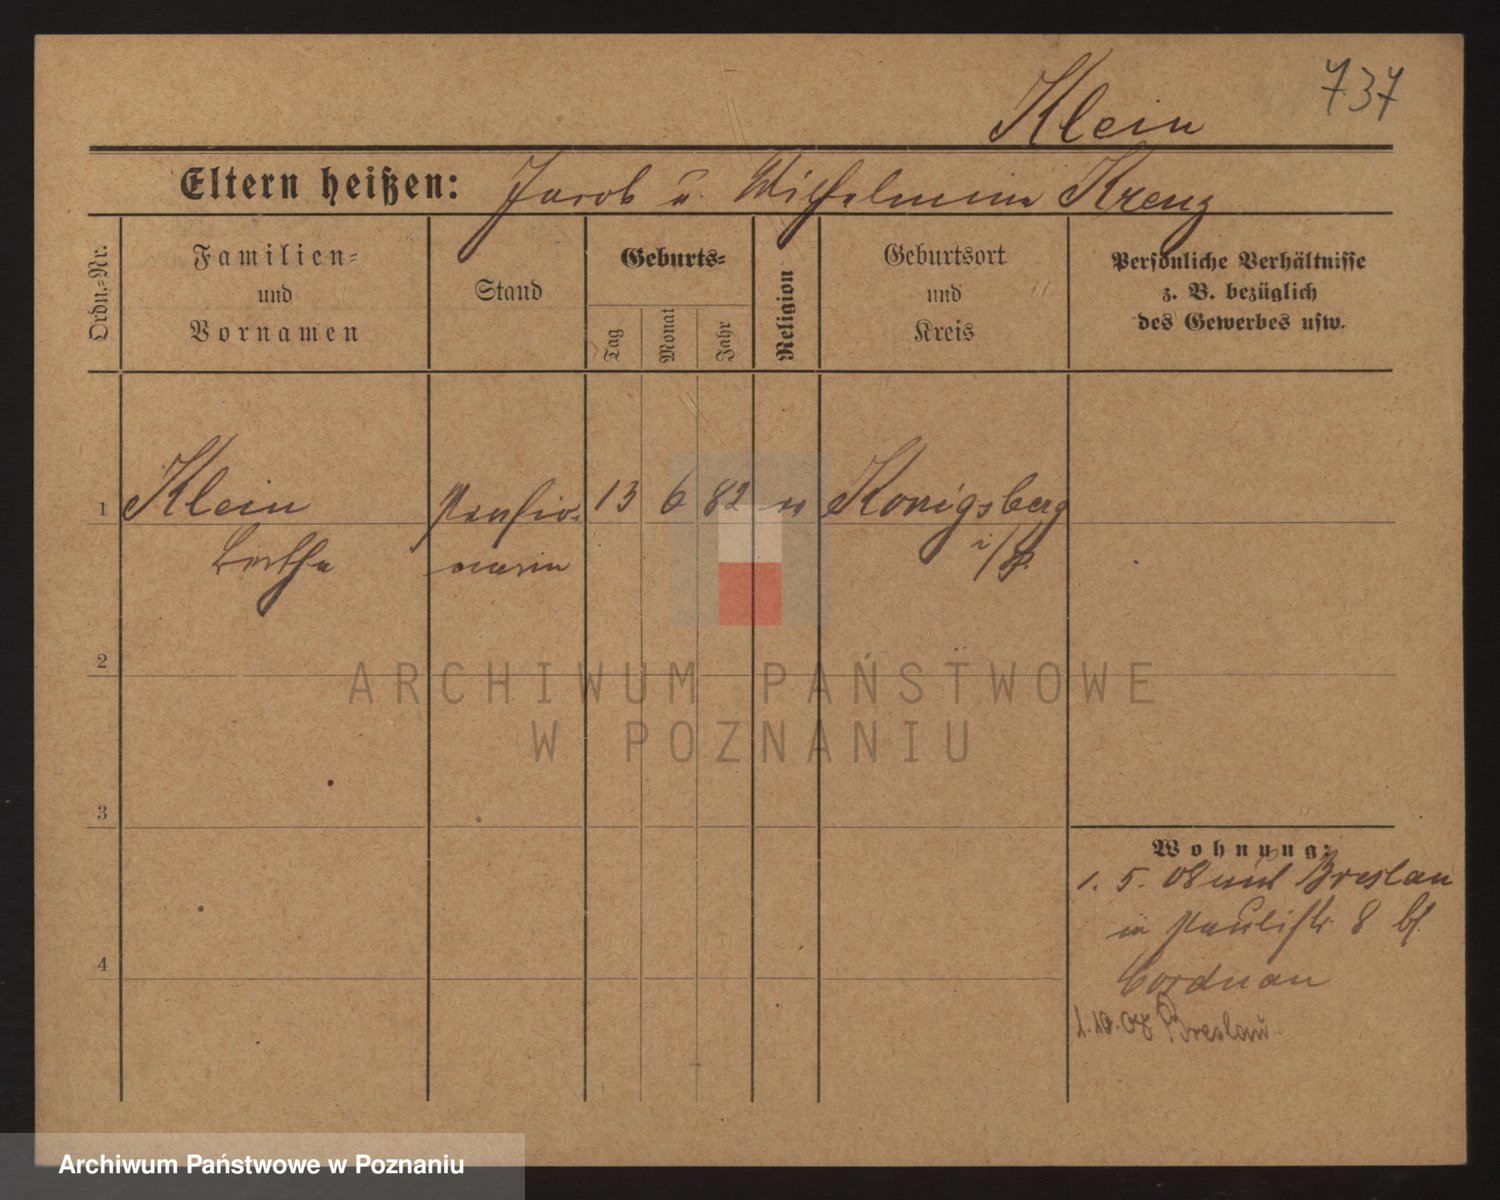 737
Klein
Eltern heißen: Jacob u. Wilhelmine Krenz
Ordn.-Nr.
Familien-
und
Vornamen
Stand
Geburts-
Tag
Monat
Jahr
Religion
Geburtsort
und
Kreis
Persönliche Verhältnisse
z. B. bezüglich
des Gewerbes usw.
1 Klein Pensio- 13 6 82 Königsberg
Bertha närin i/P.
2
3
4
Wohnung:
1. 5. 08 aus Breslau
in Paulistr. 8 bf.
Cordnan
1.10.08 Breslau
ARCHIWUM PAŃSTWOWE
W POZNANIU
Archiwum Państwowe w Poznaniu